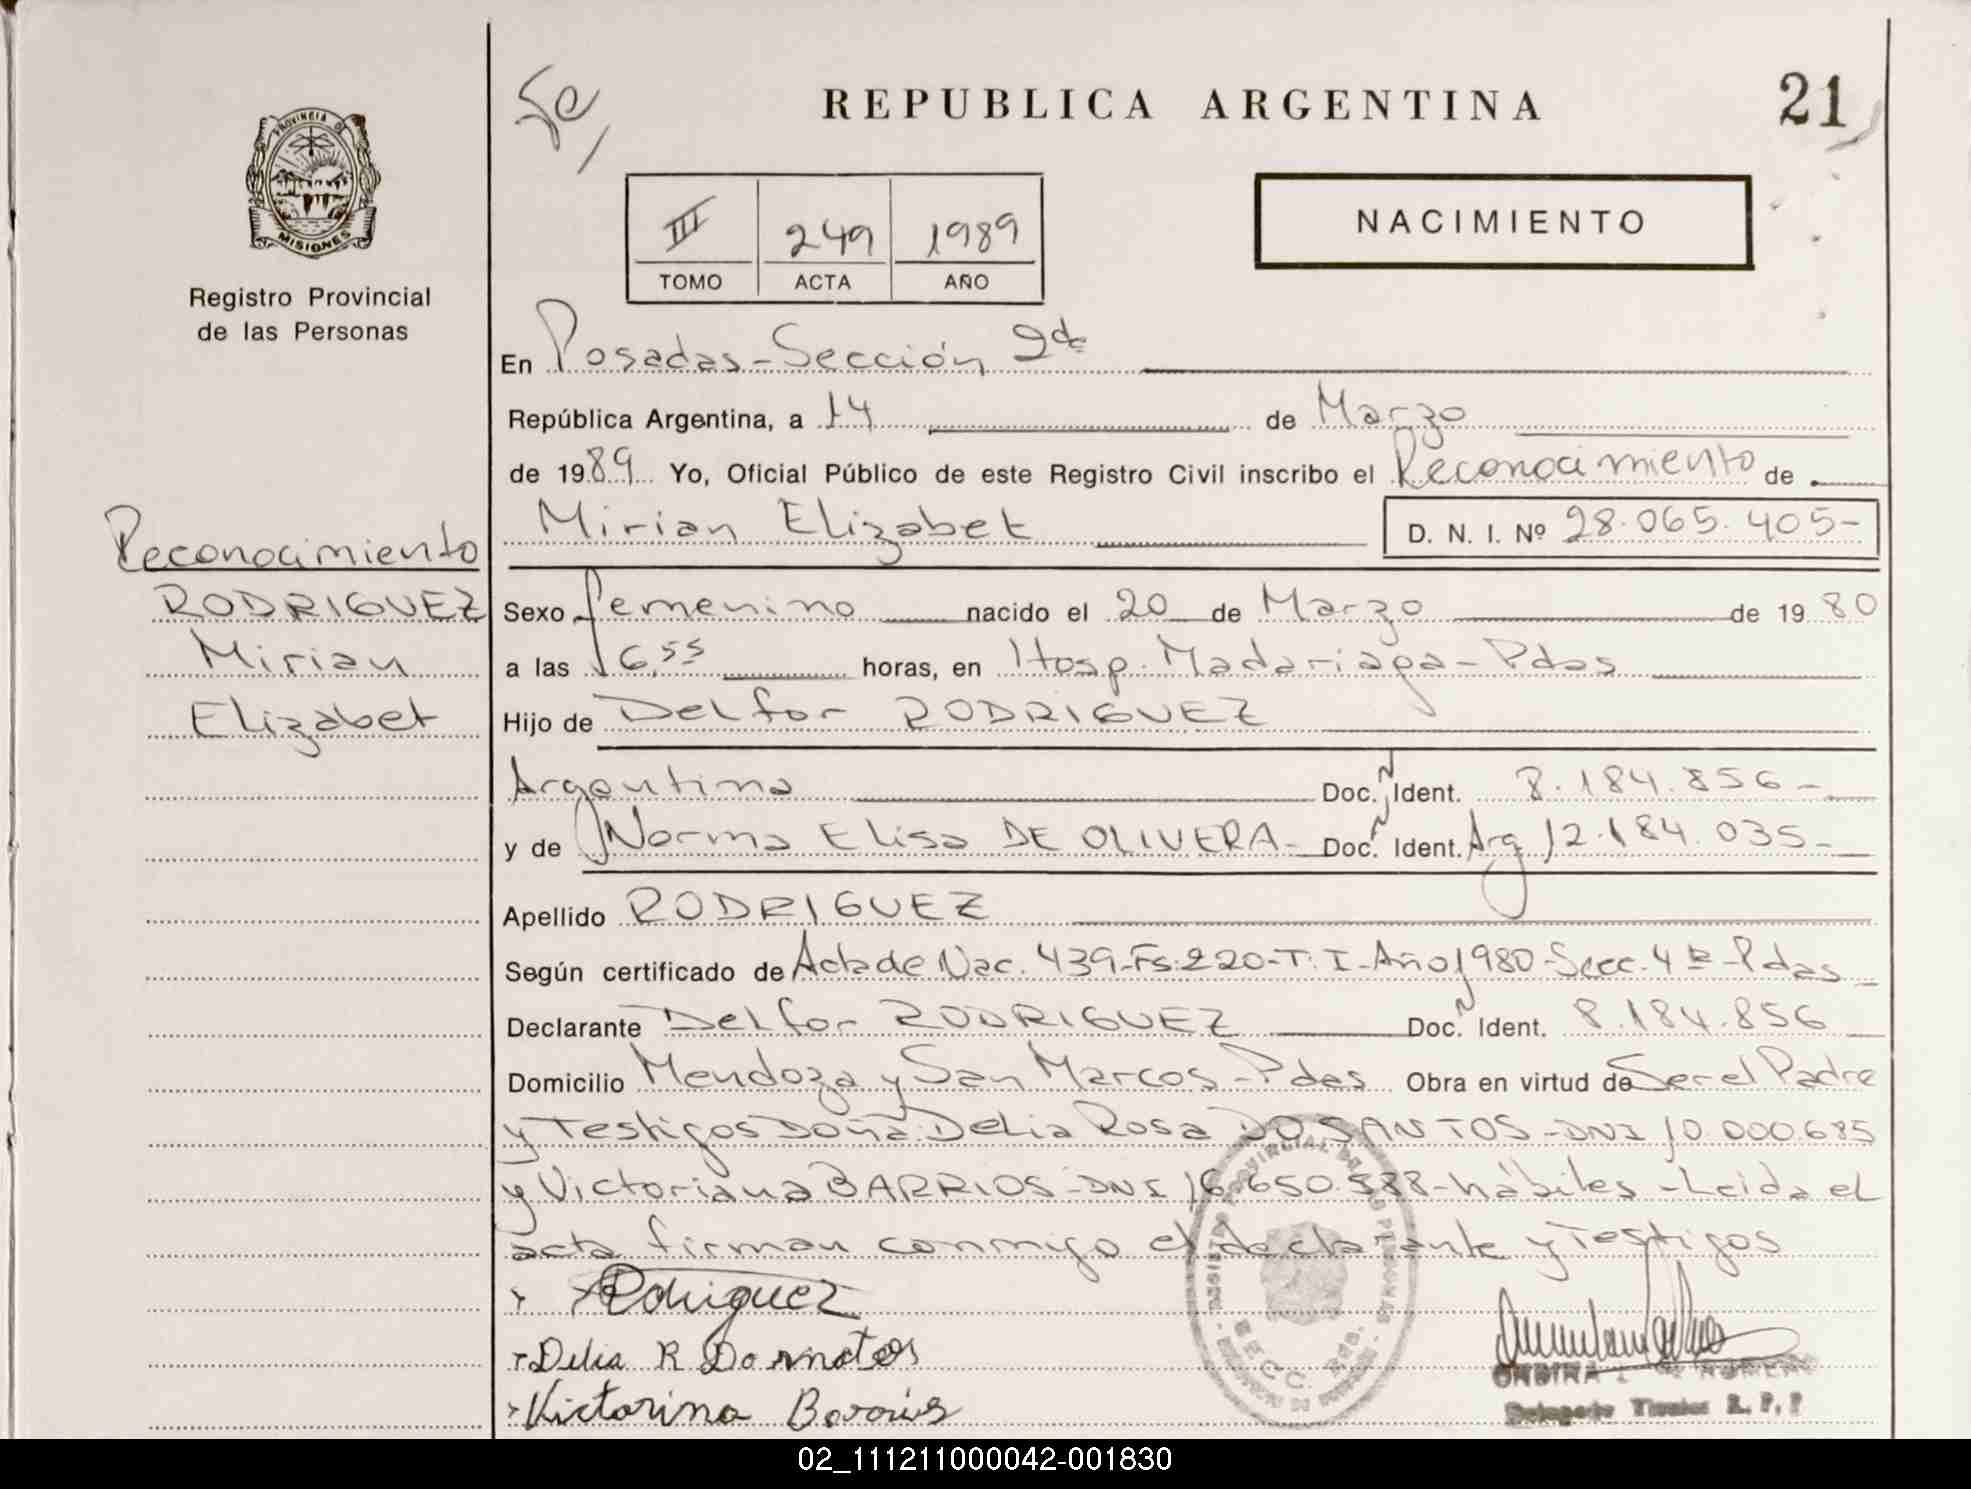 REPUBLICA ARGENTINA
21
PROVINCIA DE
MISIONES
Registro Provincial
de las Personas
III 249 1989
TOMO ACTA AÑO
NACIMIENTO
En Posadas-Sección 2da
República Argentina, a 14 de Marzo
de 1989 Yo, Oficial Público de este Registro Civil inscribo el Reconocimiento de
Mirian Elizabet D. N. I. Nº 28.065.405-
Reconocimiento
RODRIGUEZ
Mirian
Elizabet
Sexo femenino nacido el 20 de Marzo de 1980
a las 16,55 horas, en Hosp. Madariaga-Pdas
Hijo de Delfor RODRIGUEZ
Argentino Doc. Ident. 8.184.856-
y de Norma Elisa DE OLIVERA- Doc. Ident. Arg 12.184.035-
Apellido RODRIGUEZ
Según certificado de Acta de Nac. 439-Fs.220-T.I-Año 1980-Secc.4ta-Pdas
Declarante Delfor RODRIGUEZ Doc. Ident. 8.184.856
Domicilio Mendoza y San Marcos-Pdas Obra en virtud de Ser el Padre
y Testigos Doña Delia Rosa DO SANTOS-DNI 10.000.685
y Victoriana BARRIOS-DNI 16.650.588-hábiles-Leida el
acta firman conmigo el declarante y Testigos
Rodriguez
Delia R Do
Victorina
ONDINA
Delegado Titular R. P. P
REGISTRO PROVINCIAL DE LAS PERSONAS
SECC. 2da.
02_111211000042-001830